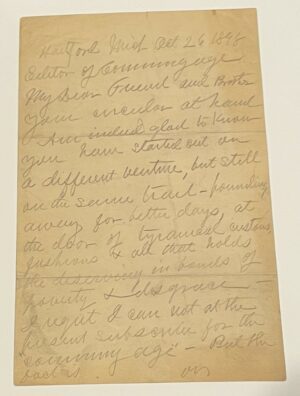 Hartford Mich Oct 26 1898
Editor of Comming age
My Dear Friend and Brother
Your circular at hand
I Am indeed glad to know
you have started out on
a different venture, but still
on the same trail - pounding
away for better days, at
the door of tyranical customs,
fashions & all that holds
the deserving in bonds of
poverty & disgrace -
I regret I can not at the
present subscribe for the
"comming age" - But the
fact is